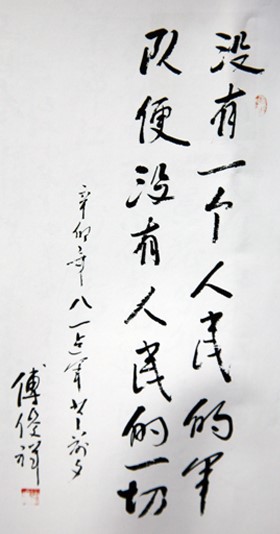 没有一个人民的军
队便没有人民的一切
辛卯年八一建军节前夕
傅俊祥